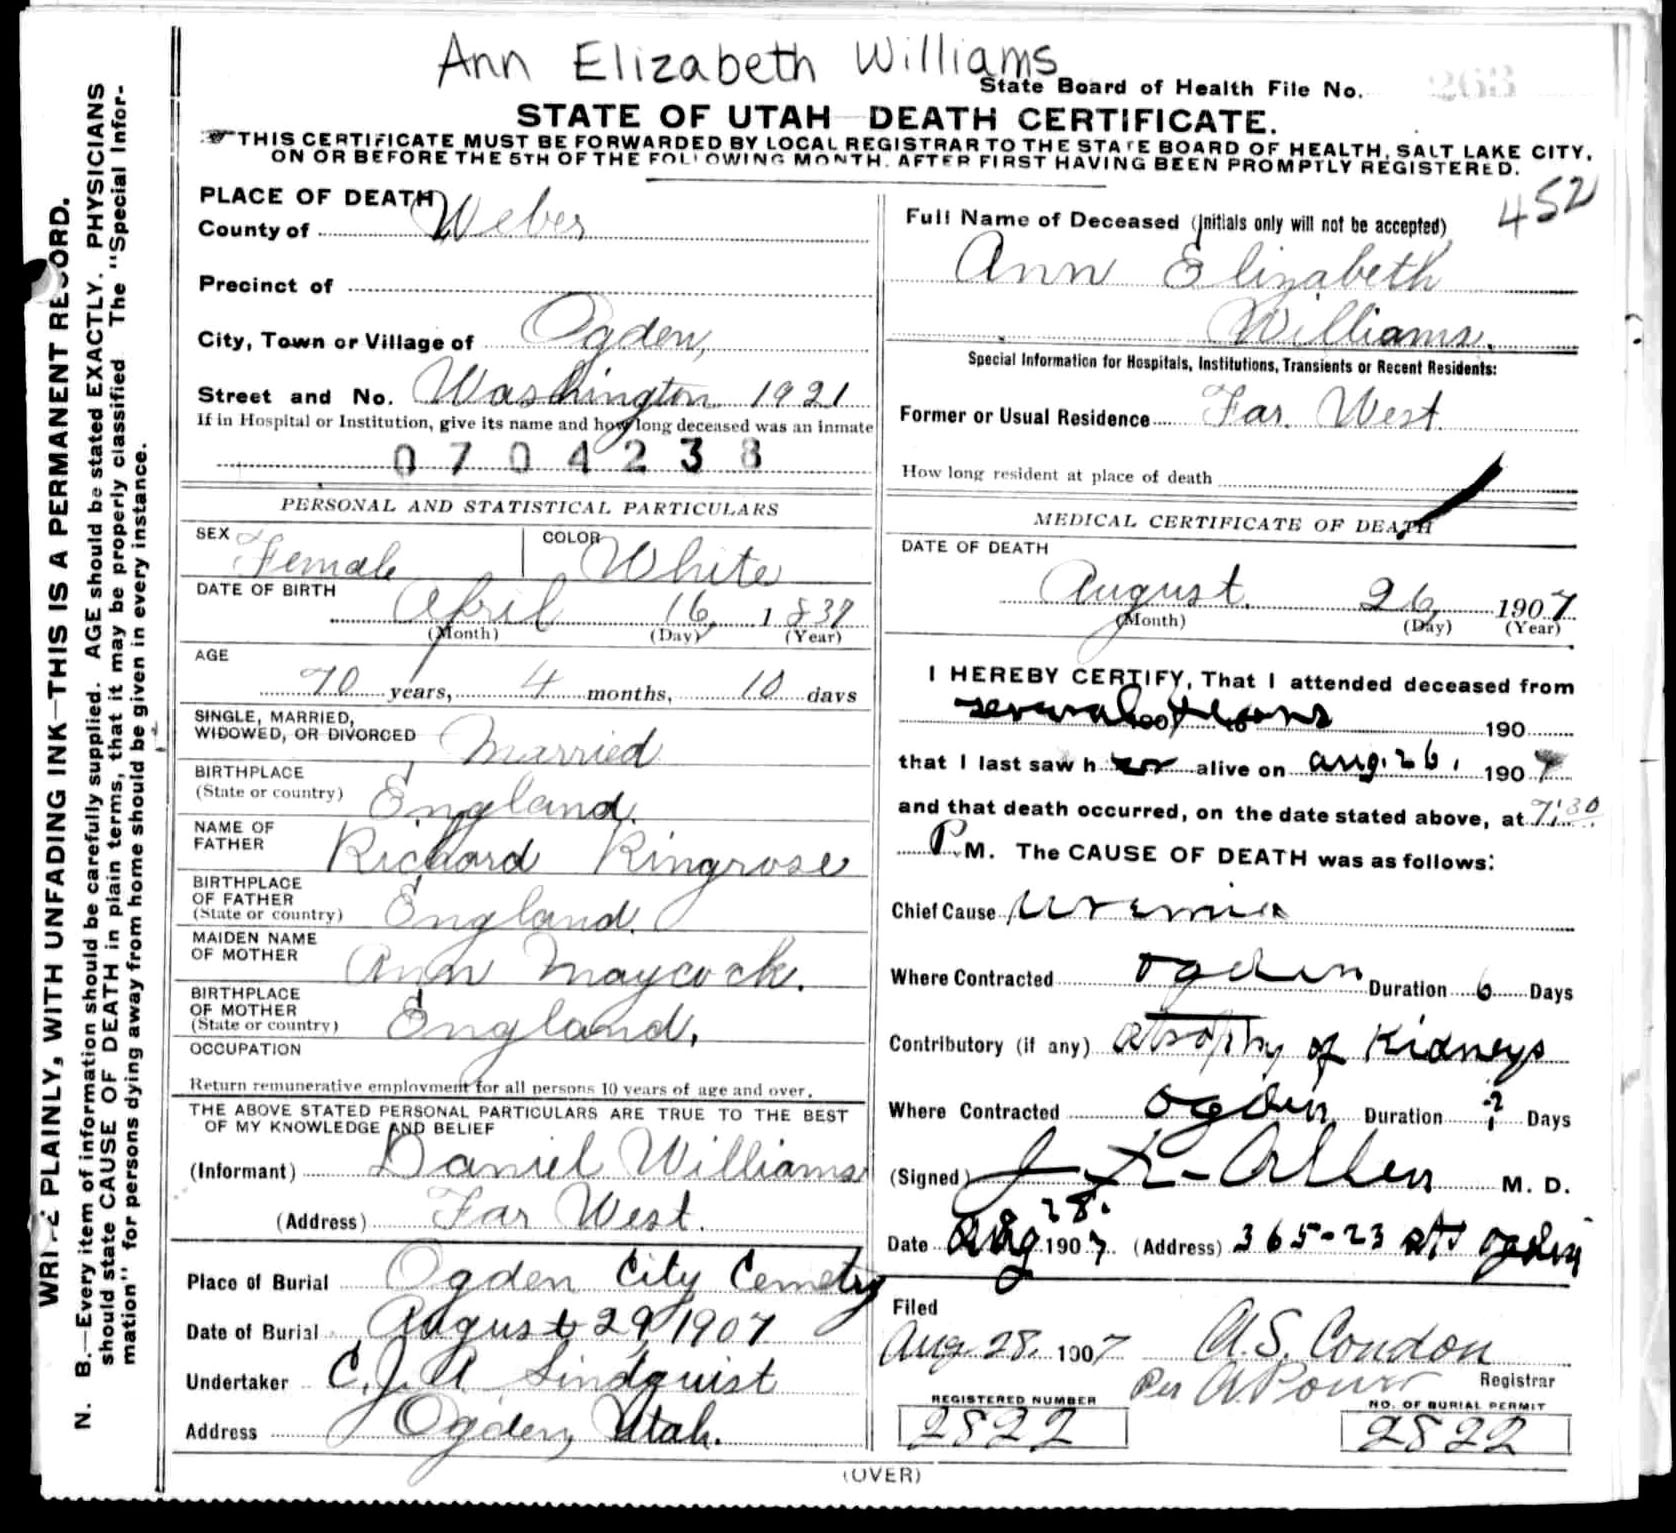 Ann Elizabeth Williams
State Board of Health File No. 263
STATE OF UTAH DEATH CERTIFICATE.
THIS CERTIFICATE MUST BE FORWARDED BY LOCAL REGISTRAR TO THE STATE BOARD OF HEALTH, SALT LAKE CITY,
ON OR BEFORE THE 5TH OF THE FOLLOWING MONTH, AFTER FIRST HAVING BEEN PROMPTLY REGISTERED.
WRITE PLAINLY, WITH UNFADING INK—THIS IS A PERMANENT RECORD.
N. B.—Every item of information should be carefully supplied. AGE should be stated EXACTLY. PHYSICIANS
should state CAUSE OF DEATH in plain terms, that it may be properly classified The "Special Infor-
mation" for persons dying away from home should be given in every instance.
PLACE OF DEATH
County of Weber
Precinct of
City, Town or Village of Ogden,
Street and No. Washington 1921
If in Hospital or Institution, give its name and how long deceased was an inmate
0704238
PERSONAL AND STATISTICAL PARTICULARS
SEX Female COLOR White
DATE OF BIRTH April 16, 1837
(Month) (Day) (Year)
AGE
70 years, 4 months, 10 days
SINGLE, MARRIED,
WIDOWED, OR DIVORCED Married
BIRTHPLACE
(State or country) England.
NAME OF
FATHER Richard Ringrose
BIRTHPLACE
OF FATHER
(State or country) England.
MAIDEN NAME
OF MOTHER Ann Maycock.
BIRTHPLACE
OF MOTHER
(State or country) England,
OCCUPATION
Return remunerative employment for all persons 10 years of age and over.
THE ABOVE STATED PERSONAL PARTICULARS ARE TRUE TO THE BEST
OF MY KNOWLEDGE AND BELIEF
(Informant) Daniel Williams
(Address) Far West.
Place of Burial Ogden City Cemetry
Date of Burial August 29, 1907
Undertaker C. J. A. Lindquist
Address Ogden, Utah.
452
Full Name of Deceased (Initials only will not be accepted)
Ann Elizabeth
Williams.
Special Information for Hospitals, Institutions, Transients or Recent Residents:
Former or Usual Residence Far West
How long resident at place of death
MEDICAL CERTIFICATE OF DEATH
DATE OF DEATH
August 26, 1907.
(Month) (Day) (Year)
I HEREBY CERTIFY, That I attended deceased from
several 190
that I last saw her alive on Aug. 26, 1907
and that death occurred, on the date stated above, at 7:30
P. M. The CAUSE OF DEATH was as follows:
Chief Cause Uremia
Where Contracted Ogden Duration 6 Days
Contributory (if any) Atrophy of Kidneys
Where Contracted Ogden Duration ? Days
(Signed) Allen M. D.
Date Aug 28. 1907. (Address) 365-23 Ogden
Filed
Aug. 28, 1907 A. S. Condon
Per A Power Registrar
REGISTERED NUMBER
2822
NO. OF BURIAL PERMIT
2822
(OVER)